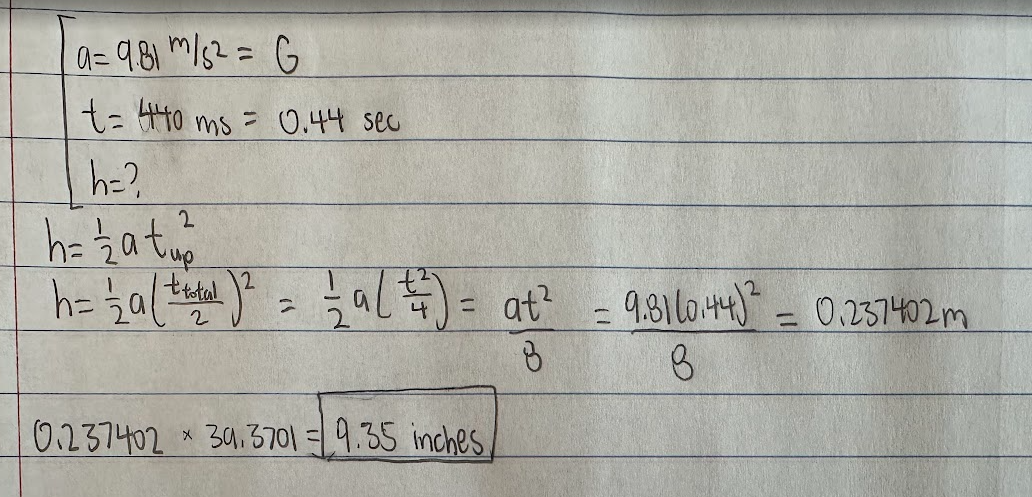 a = 9.81 m/s² = G
t = 440 ms = 0.44 sec
h = ?
h = 1/2 a t_up²
h = 1/2 a (t_total/2)² = 1/2 a (t²/4) = at²/8 = 9.81(0.44)²/8 = 0.237402m
0.237402 × 39.3701 = 9.35 inches